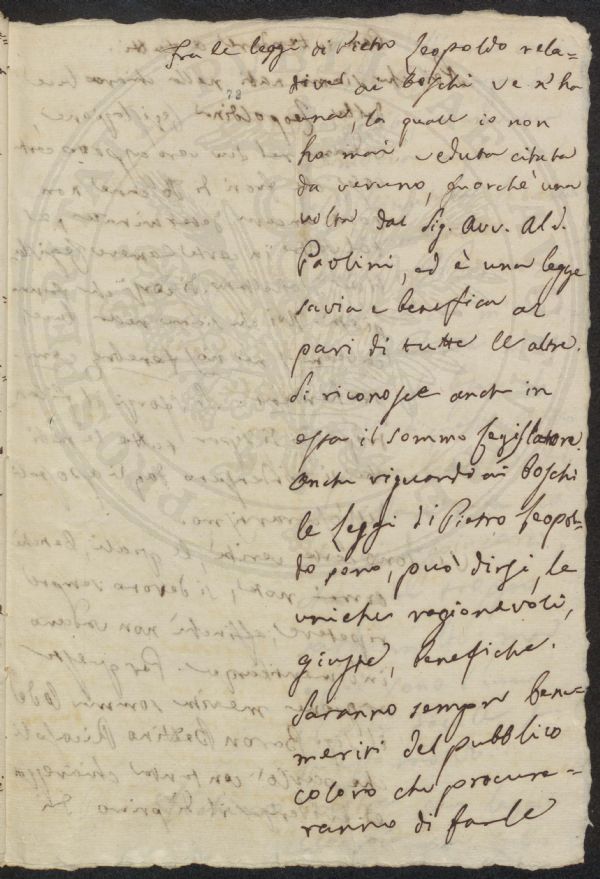 Fra le leggi di Pietro Leopoldo rela=
tive ai boschi ve n'ha
una, la quale io non
ho mai veduta citata
da veruno, fuorchè una
volta dal Sig. Avv. Ald.
Paolini, ed è una legge
savia e benefica al
pari di tutte le altre.
Si riconosce anche in
essa il sommo Legislatore.
Anche riguardo ai boschi
le Leggi di Pietro Leopol=
do sono, può dirsi, le
uniche ragionevoli,
giuste, benefiche.
Saranno sempre bene=
meriti del pubblico
coloro che procure=
ranno di farle